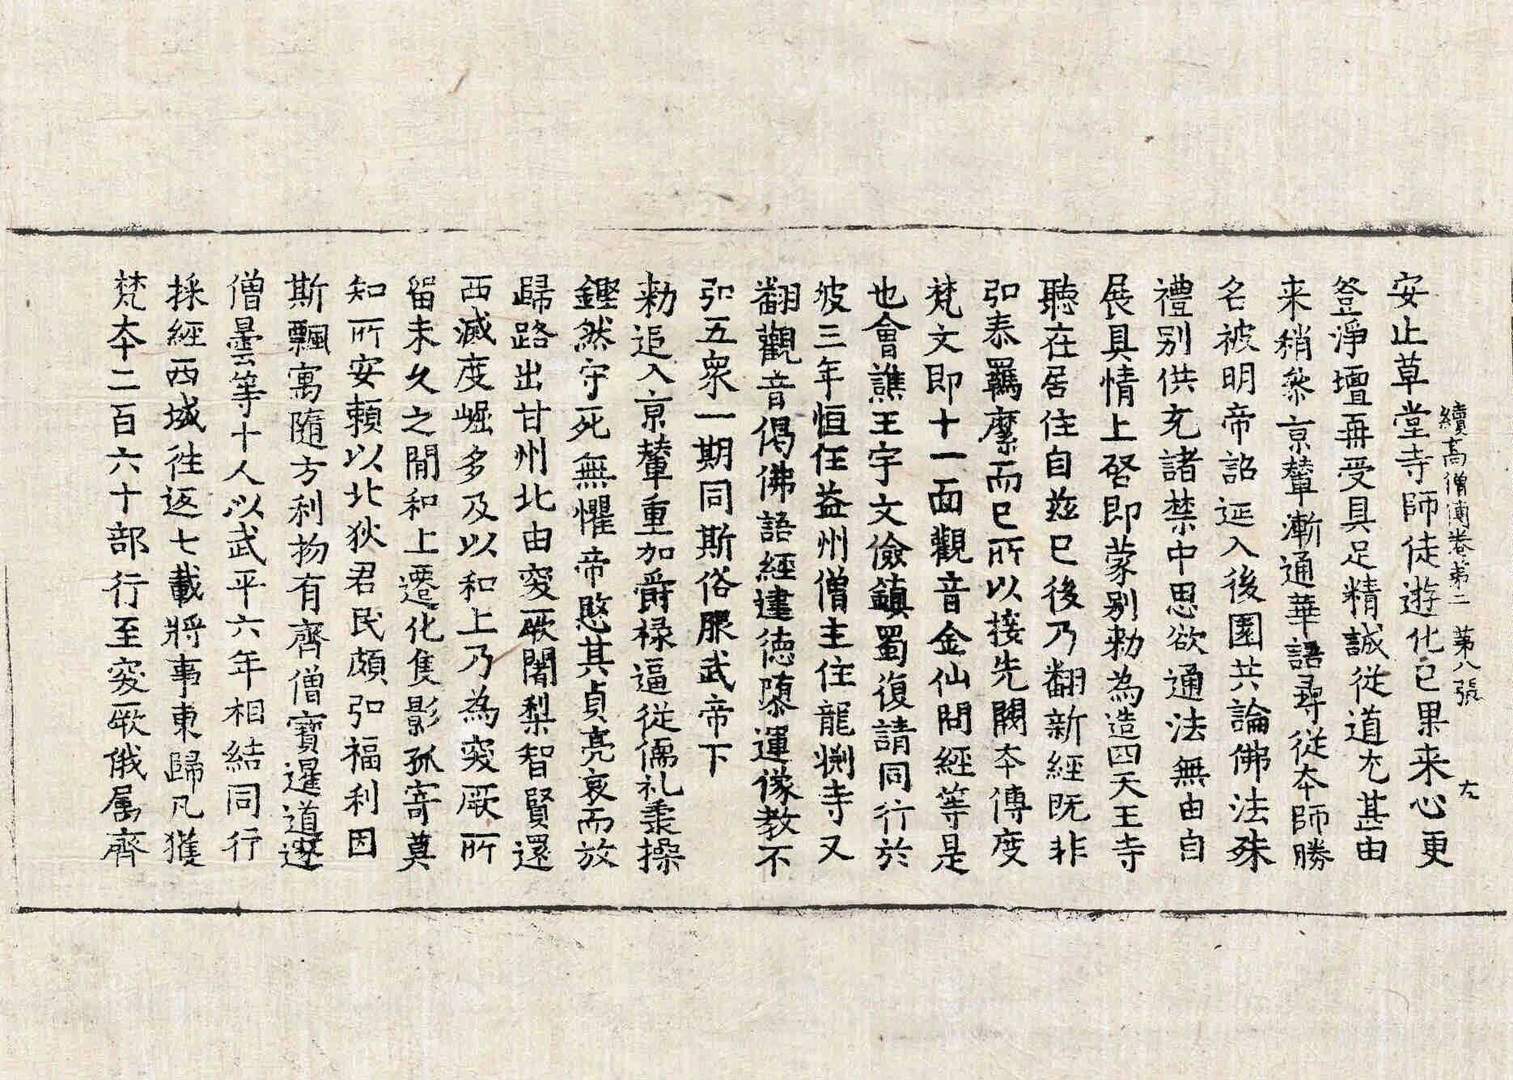 續高僧傳卷第二　第八張　左
安止草堂寺師徒遊化已果来心更
登淨壇再受具足精誠從道尤甚由
来稍參京輦漸通華語尋從夲師勝
名被明帝詔延入後園共論佛法殊
禮別供充諸禁中思欲通法無由自
展具情上啓即蒙别勑為造四天王寺
聽在居住自兹已後乃翻新經旣非
弘泰羈縻而已所以接先闕夲傳度
梵文即十一面觀音金仙問經等是
也會譙王宇文儉鎮蜀復請同行於
彼三年恒任益州僧主住龍渊寺又
翻觀音偈佛語經建德隳運像教不
弘五衆一期同斯俗服武帝下
勑追入京輦重加爵祿逼從儒礼秉操
鏗然守死無懼帝愍其貞亮哀而放
歸路出甘州北由突厥闍梨智賢還
西滅度崛多及以和上乃為突厥所
留未久之間和上遷化隻影孤寄莫
知所安頼以北狄君民頗弘福利因
斯飄寓隨方利物有齊僧寶暹道邃
僧曇等十人以武平六年相結同行
採經西域往返七載將事東歸凡獲
梵夲二百六十部行至突厥俄屬齊